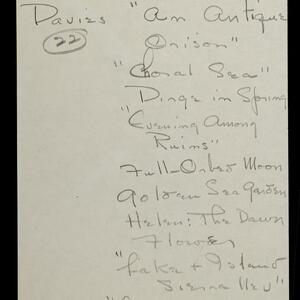 Davies "An Antique
22 Orison"
"Coral Sea"
Dirge in Spring
"Evening Among
Ruins"
Full-Orbed Moon
Golden Sea Garden
Helen: The Dawn
Flower
"Lake + Island
Sierra Nev"